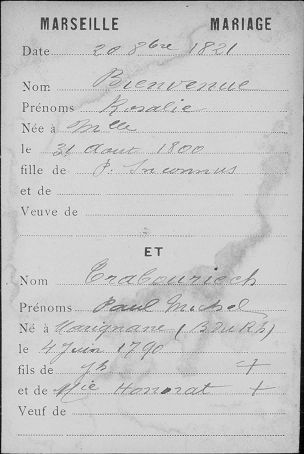 MARSEILLE MARIAGE
Date 20 8bre 1821
Nom Bienvenue
Prénoms Rosalie
Née à Mlle
le 31 Aout 1800
fille de P. Inconnus
et de
Veuve de
ET
Nom Trabouriech
Prénoms Paul Michel
Né à Marignane (B du Rh)
le 4 Juin 1790
fils de Jh +
et de Mie Honorat +
Veuf de